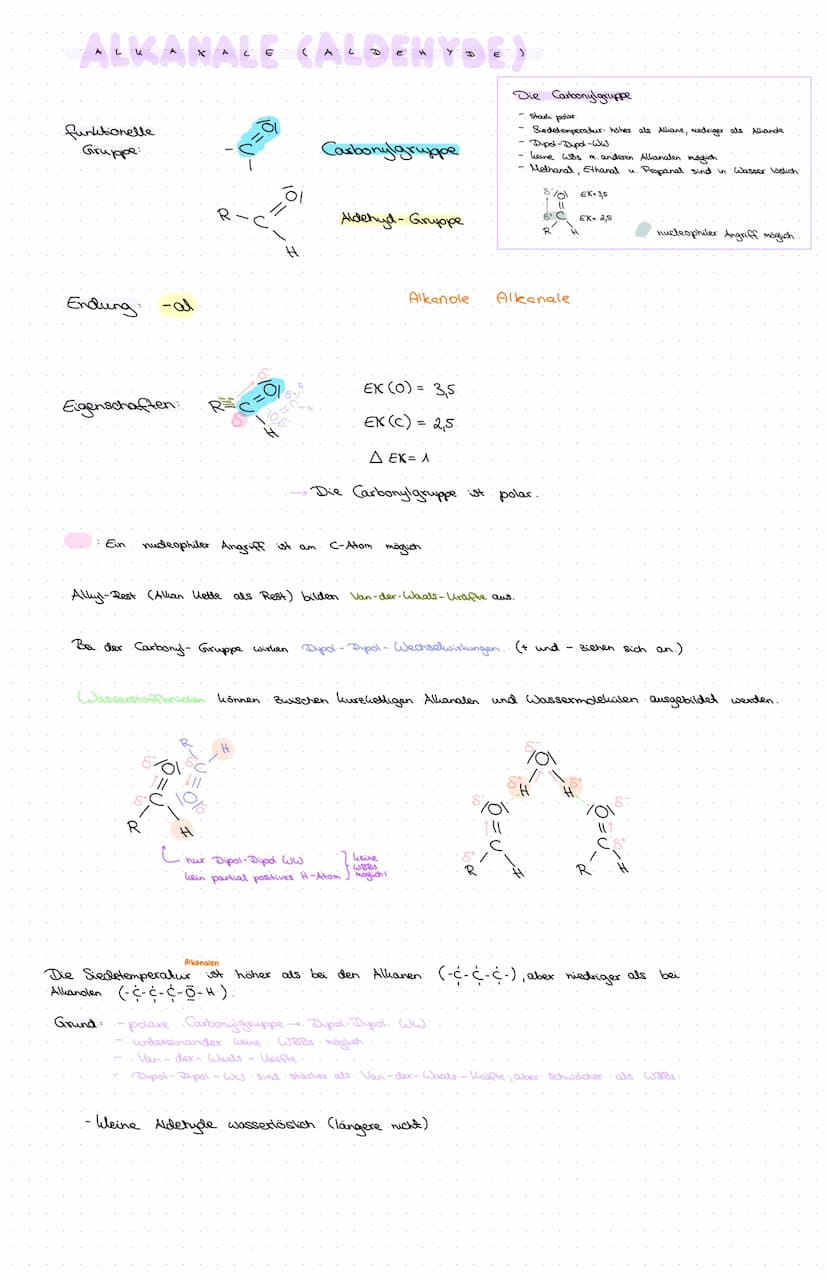 ALKANALE (ALDEHYDE)
Die Carbonylgruppe
- stark polar
- Siedetemperatur höher als Alkane, niedriger als Alkanole
- Dipol-Dipol-WW
- keine WBBs m. anderen Alkanalen möglich
- Methanal, Ethanal u. Propanal sind in Wasser löslich
δ⁻ O EK=3,5
δ⁺ C EK=2,5
R H
nucleophiler Angriff möglich
funktionelle
Gruppe:
- C = O
Carbonylgruppe
R - C = O
H
Aldehyd-Gruppe
Endung: -al
Alkanole Alkanale
Eigenschaften:
R C = O
H
δ⁻
δ⁺
EK(O) = 3,5
EK(C) = 2,5
Δ EK = 1
→ Die Carbonylgruppe ist polar.
: Ein nucleophiler Angriff ist am C-Atom möglich
Alkyl-Rest (Alkan Kette als Rest) bilden Van-der-Waals-Kräfte aus.
Bei der Carbonyl-Gruppe wirken Dypol-Dypol-Wechselwirkungen. (+ und - ziehen sich an.)
Wasserstoffbrücken können zwischen kurzkettigen Alkanalen und Wassermolekülen ausgebildet werden.
R H
δ⁻ O δ⁺ C
δ⁺ C O δ⁻
R H
nur Dipol-Dipol WW
kein partial positives H-Atom
keine
WBBs
möglich!
δ⁻
O
δ⁺ H H δ⁺
δ⁻ O O δ⁻
C C δ⁺
δ⁺ R H R H
Alkanalen
Die Siedetemperatur ist höher als bei den Alkanen (-C-C-C-), aber niedriger als bei
Alkanolen (-C-C-C-O-H).
Grund: - polare Carbonylgruppe → Dypol-Dypol WW
- untereinander keine WBBs möglich
- Van-der-Waals-Kräfte
- Dypol-Dypol-WW sind stärker als Van-der-Waals-Kräfte, aber schwächer als WBBs.
- kleine Aldehyde wasserlöslich (längere nicht)